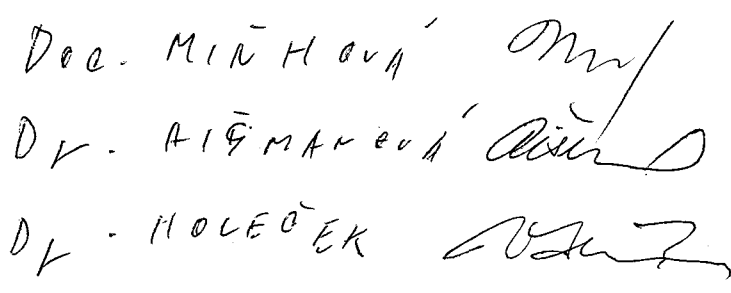 Doc. MIŇHOVÁ
Dr. AIŠMANOVÁ
Dr. HOLEČEK